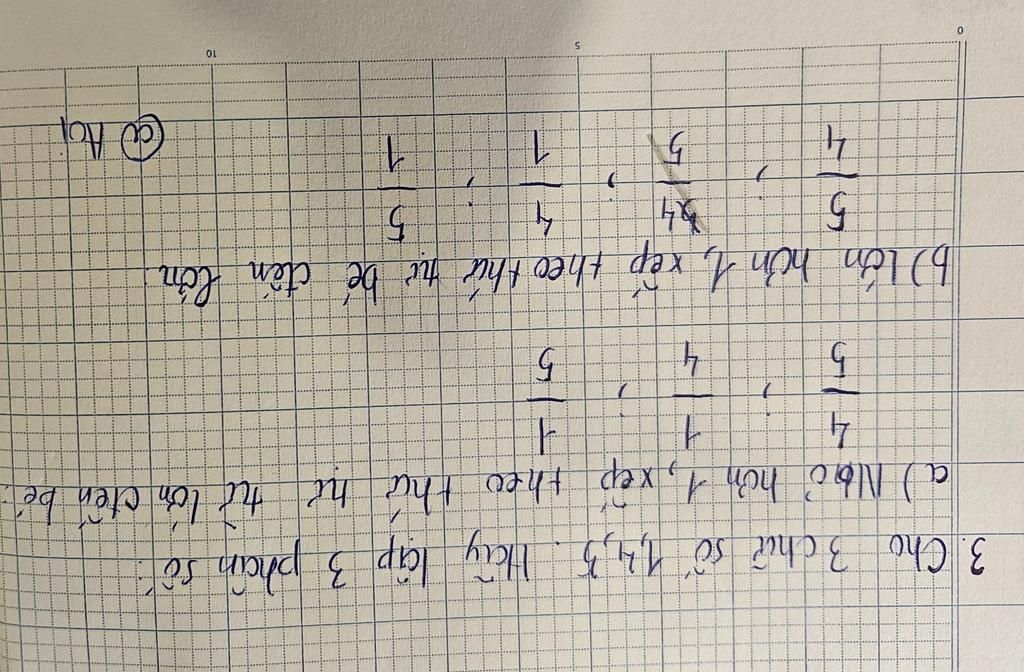 3. Cho 3 chữ số 1,4,5. Hãy lập 3 phân số:
a) Nhỏ hơn 1, xếp theo thứ tự từ lớn đến bé:
4/5 ; 1/4 ; 1/5
b) Lớn hơn 1, xếp theo thứ tự bé đến lớn
5/4 ; 4/5 ; 4/1 ; 5/1
10 5 0